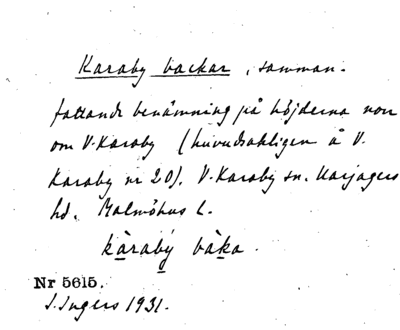 Karaby backar, samman-
fattande benämning på höjderna norr
om V. Karaby (huvudsakligen å V.
Karaby nr 20). V. Karaby sn. Harjagers
hd. Malmöhus l.
kàraby bàka.
Nr 5615.
I. Ingers 1931.